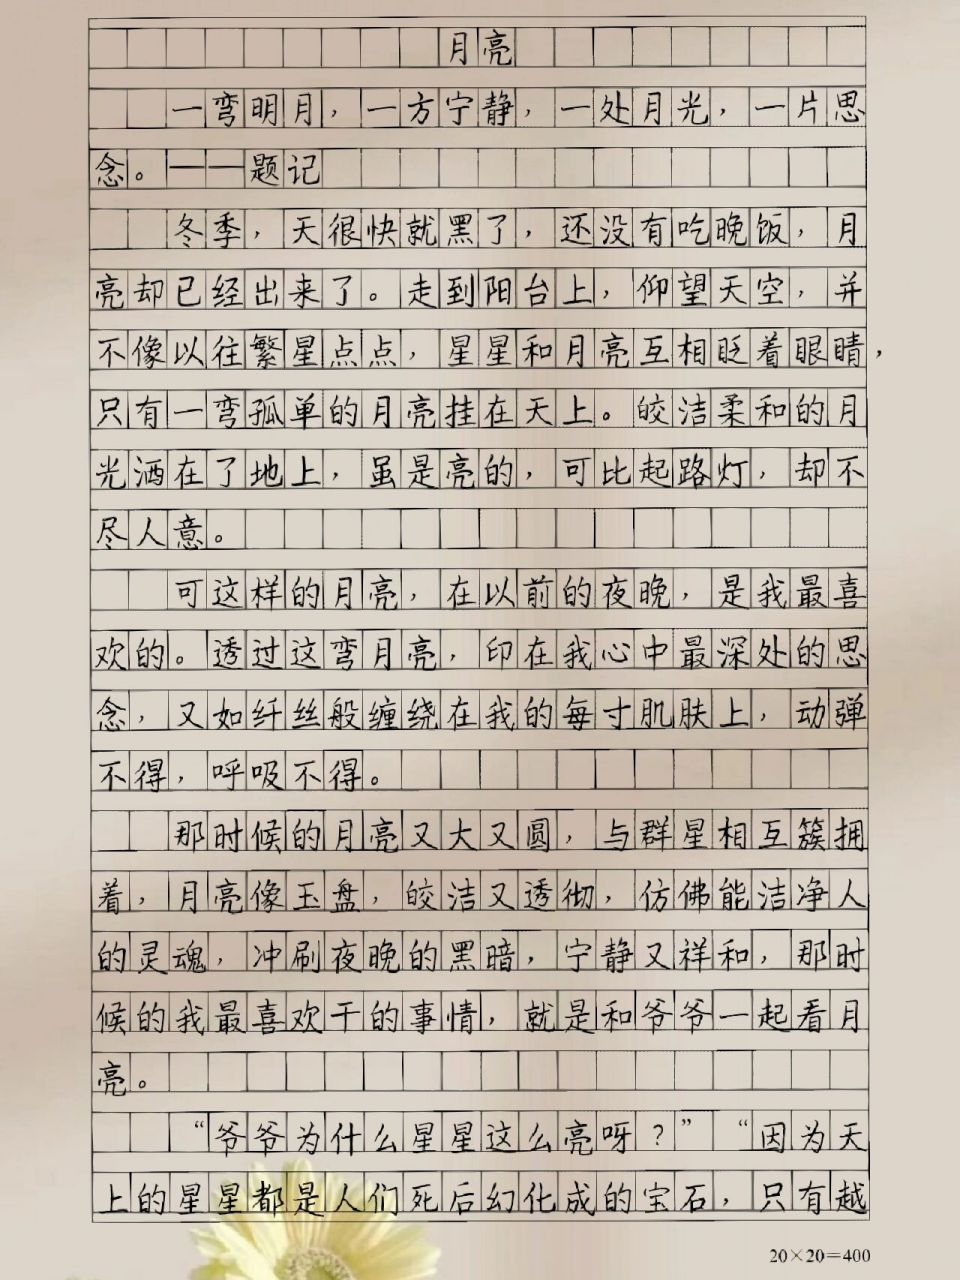 月亮
一弯明月，一方宁静，一处月光，一片思
念。——题记
冬季，天很快就黑了，还没有吃晚饭，月
亮却已经出来了。走到阳台上，仰望天空，并
不像以往繁星点点，星星和月亮互相眨着眼睛，
只有一弯孤单的月亮挂在天上。皎洁柔和的月
光洒在了地上，虽是亮的，可比起路灯，却不
尽人意。
可这样的月亮，在以前的夜晚，是我最喜
欢的。透过这弯月亮，印在我心中最深处的思
念，又如纤丝般缠绕在我的每寸肌肤上，动弹
不得，呼吸不得。
那时候的月亮又大又圆，与群星相互簇拥
着，月亮像玉盘，皎洁又透彻，仿佛能洁净人
的灵魂，冲刷夜晚的黑暗，宁静又祥和，那时
候的我最喜欢干的事情，就是和爷爷一起看月
亮。
“爷爷为什么星星这么亮呀？”“因为天
上的星星都是人们死后幻化成的宝石，只有越
20×20=400